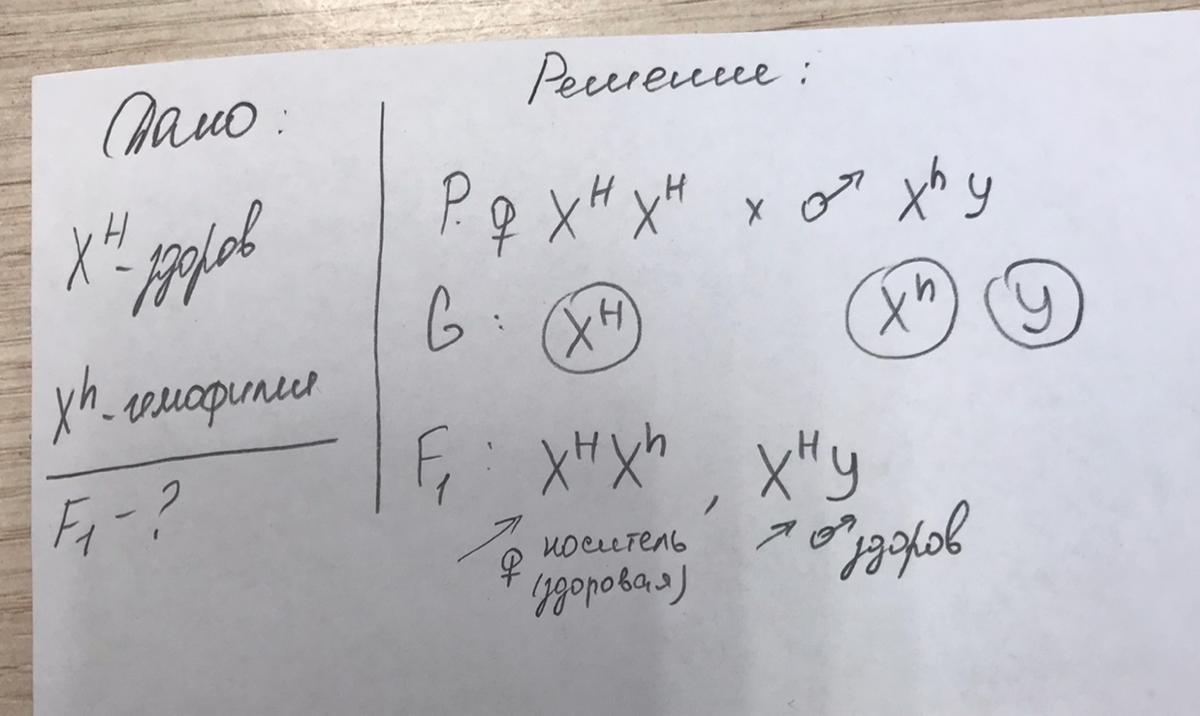 Дано:
X^H - здоров
X^h - гемофилия
F₁ - ?
Решение:
P. ♀ X^H X^H × ♂ X^h y
G: X^H X^h y
F₁: X^H X^h, X^H y
↗ ♀ носитель ↗ ♂ здоров
(здоровая)